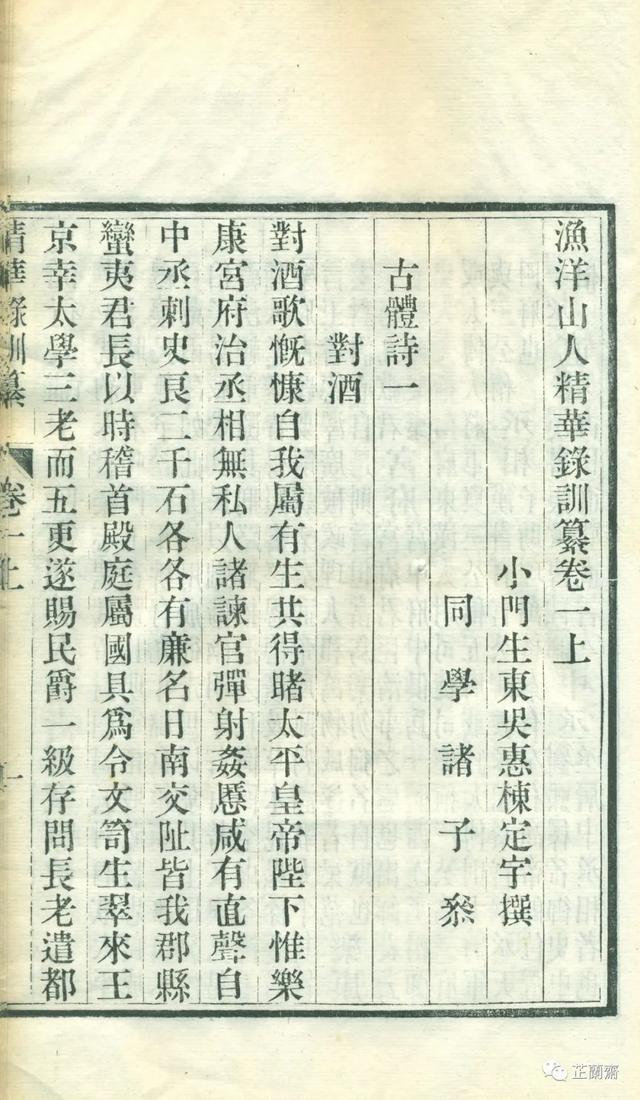 漁洋山人精華錄訓纂卷一上
小門生東吳惠棟定宇撰
同學諸子叅
古體詩一
對酒
對酒歌慨慷自我屬有生共得睹太平皇帝陛下惟樂
康宮府治丞相無私人諸諫官彈射姦慝咸有直聲自
中丞刺史良二千石各各有廉名日南交阯皆我郡縣
蠻夷君長以時稽首殿庭屬國具爲令文笥生翠來王
京幸太學三老而五更遂賜民爵一級存問長老遣都
精華錄訓纂 卷一上 一
芷蘭齋